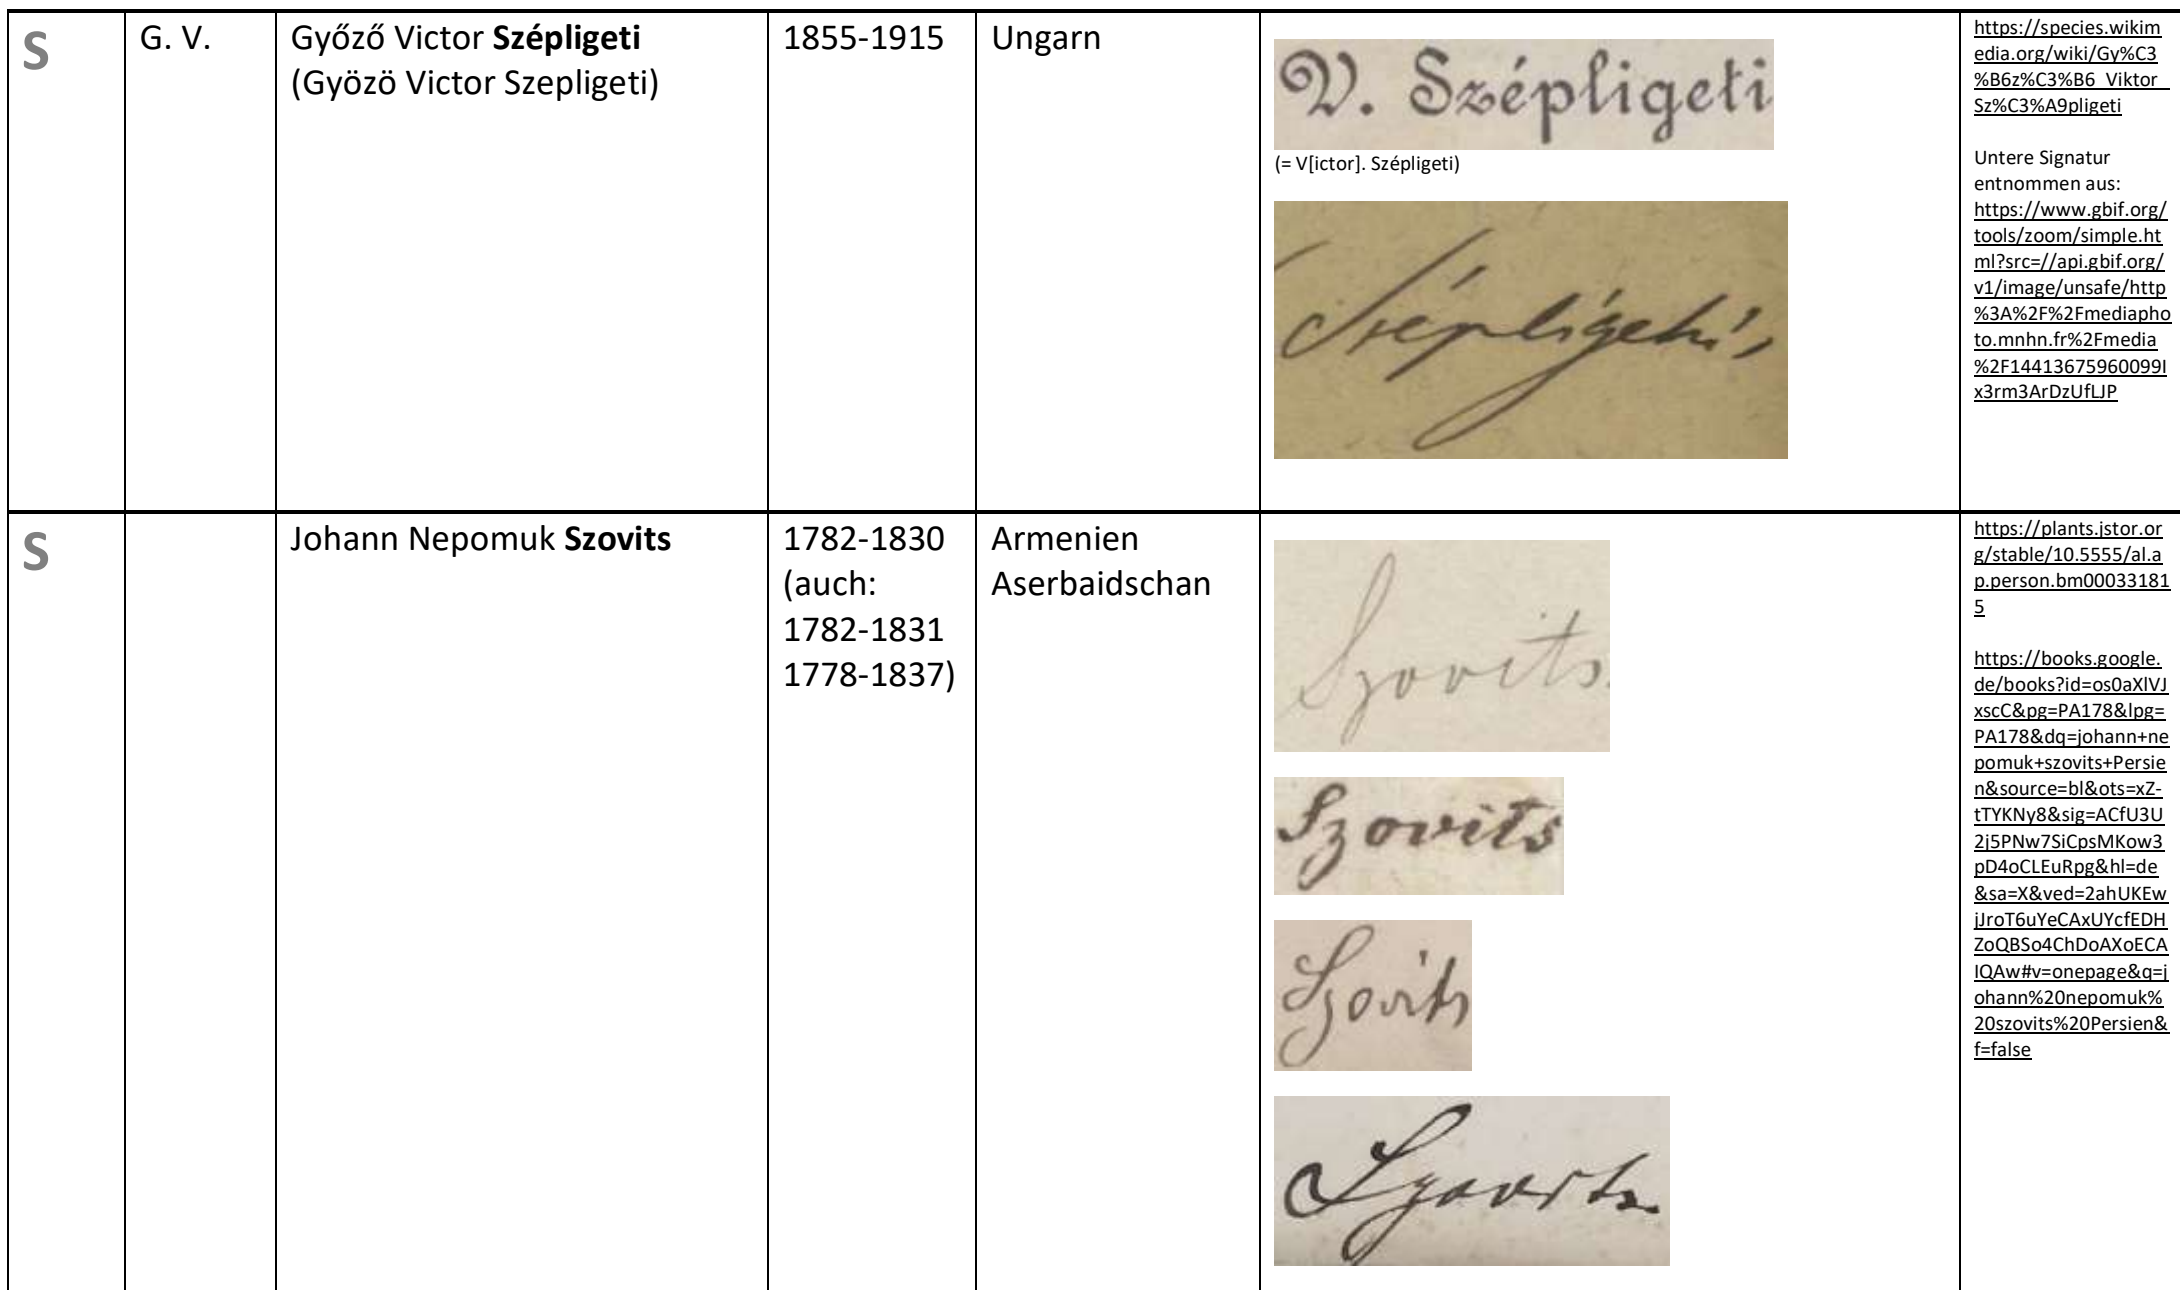 S
G. V.
Győző Victor Szépligeti
(Gyözö Victor Szepligeti)
1855-1915
Ungarn
V. Szépligeti
(= V[ictor]. Szépligeti)
Szépligeti,
https://species.wikim
edia.org/wiki/Gy%C3
%B6z%C3%B6_Viktor_
Sz%C3%A9pligeti
Untere Signatur
entnommen aus:
https://www.gbif.org/
tools/zoom/simple.ht
ml?src=//api.gbif.org/
v1/image/unsafe/http
%3A%2F%2Fmediapho
to.mnhn.fr%2Fmedia
%2F14413675960099I
x3rm3ArDzUfLJP
S
Johann Nepomuk Szovits
1782-1830
(auch:
1782-1831
1778-1837)
Armenien
Aserbaidschan
Szovits.
Szovits
Szovits
Szovits
https://plants.jstor.or
g/stable/10.5555/al.a
p.person.bm00033181
5
https://books.google.
de/books?id=os0aXlVJ
xscC&pg=PA178&lpg=
PA178&dq=johann+ne
pomuk+szovits+Persie
n&source=bl&ots=xZ-
tTYKNy8&sig=ACfU3U
2j5PNw7SiCpsMKow3
pD4oCLEuRpg&hl=de
&sa=X&ved=2ahUKEw
jJroT6uYeCAxUYcfEDH
ZoQBSo4ChDoAXoECA
IQAw#v=onepage&q=j
ohann%20nepomuk%
20szovits%20Persien&
f=false